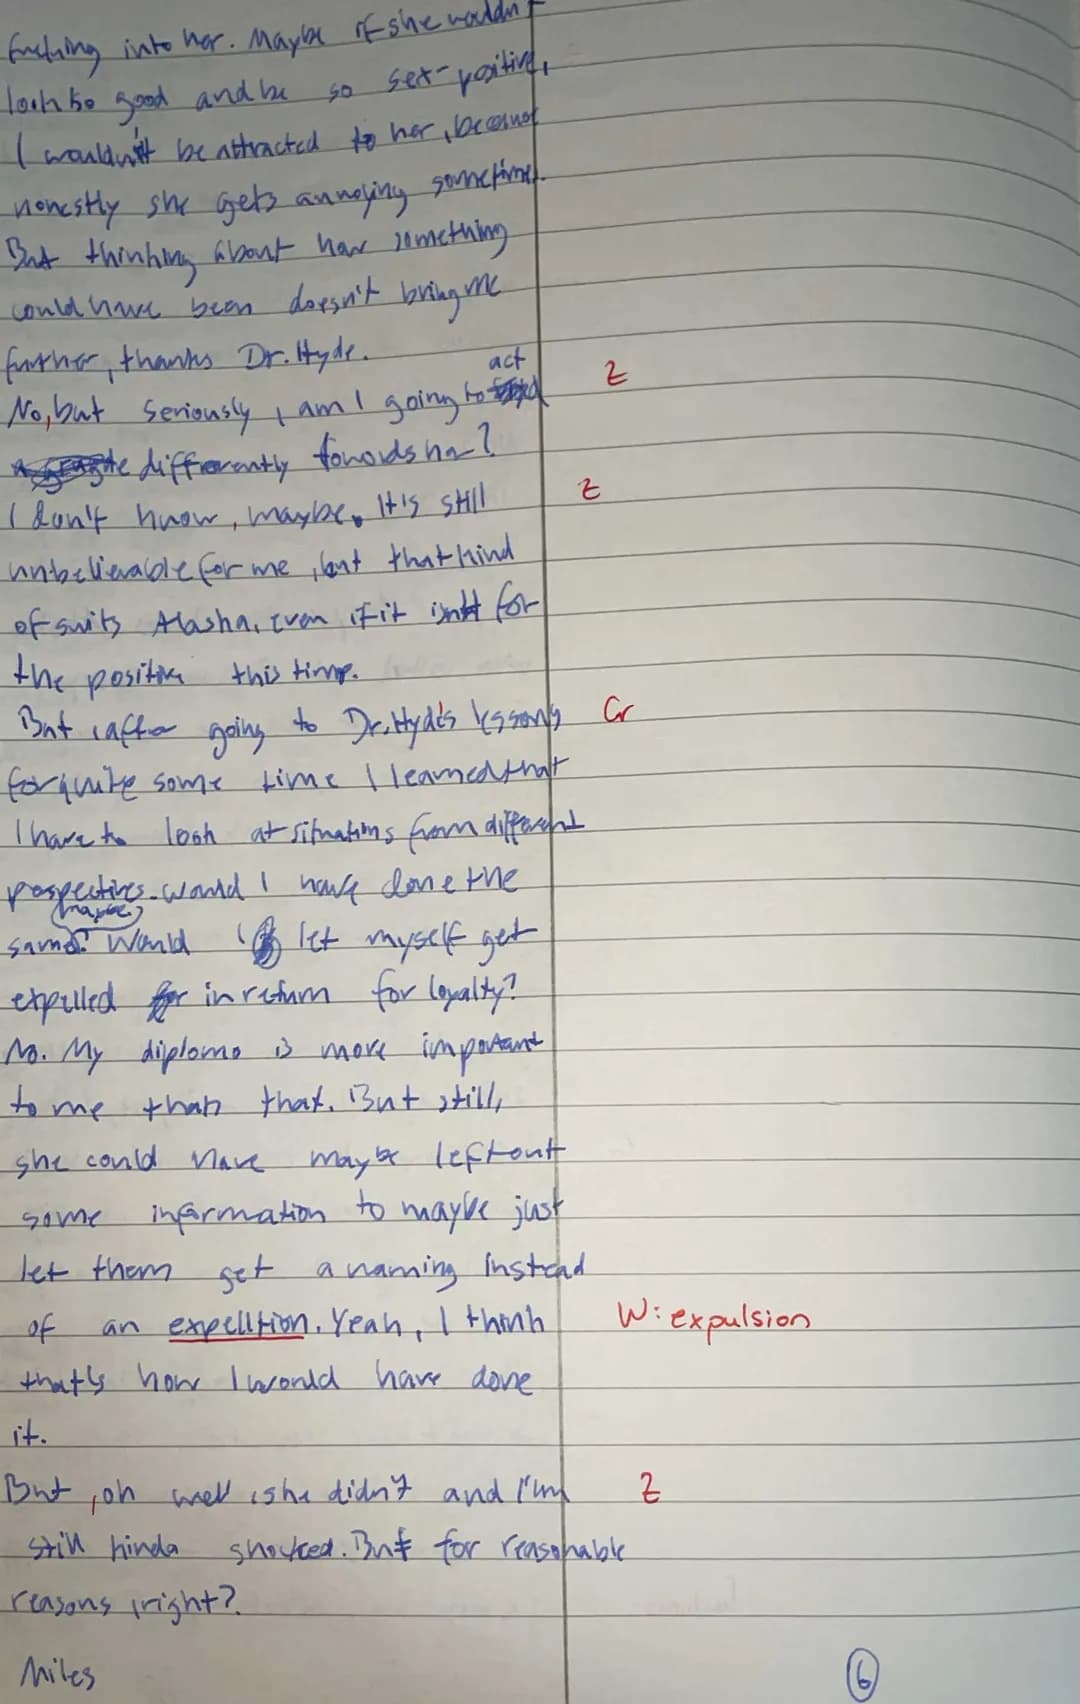 into her. Maybe if she wouldn't
look so good and be so sex-positive,
I wouldn't be attracted to her, because
honestly she gets annoying sometimes.
But thinking about how something
could have been doesn't bring me
further, thanks Dr. Hyde.
No, but seriously, am I going to act Z
differently towards her?
I don't know, maybe. It's still Z
unbelievable for me, but that kind
of suits Alasha, even if it isn't for
the positive this time.
But, after going to Dr. Hyde's lessons Gr
for quite some time I learned that
I have to look at situations from different
perspectives. Would I have done the
same? (maybe) Would I let myself get
expelled in return for loyalty?
No. My diploma is more important
to me than that. But still,
she could have maybe left out
some information to maybe just
let them get a warning instead
of an expelltion. Yeah, I think W: expulsion
that's how I would have done
it.
But, oh well, she didn't and I'm Z
still kinda shocked. But for reasonable
reasons, right?
Miles
6